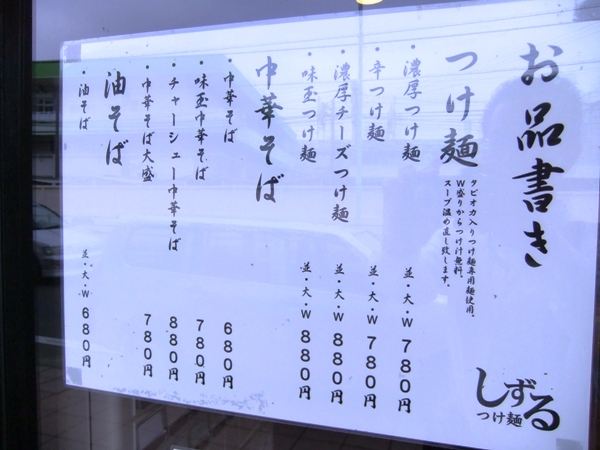 お品書き
つけ麺
タピオカ入りつけ麺専用麺使用。
W盛りからつけ汁無料。
スープ温め直し致します。
・濃厚つけ麺 並・大・W 780円
・辛つけ麺 並・大・W 780円
・濃厚チーズつけ麺 並・大・W 880円
・味玉つけ麺 並・大・W 880円
中華そば
・中華そば 680円
・味玉中華そば 780円
・チャーシュー中華そば 880円
・中華そば大盛 780円
油そば
・油そば 並・大・W 680円
しずる
つけ麺